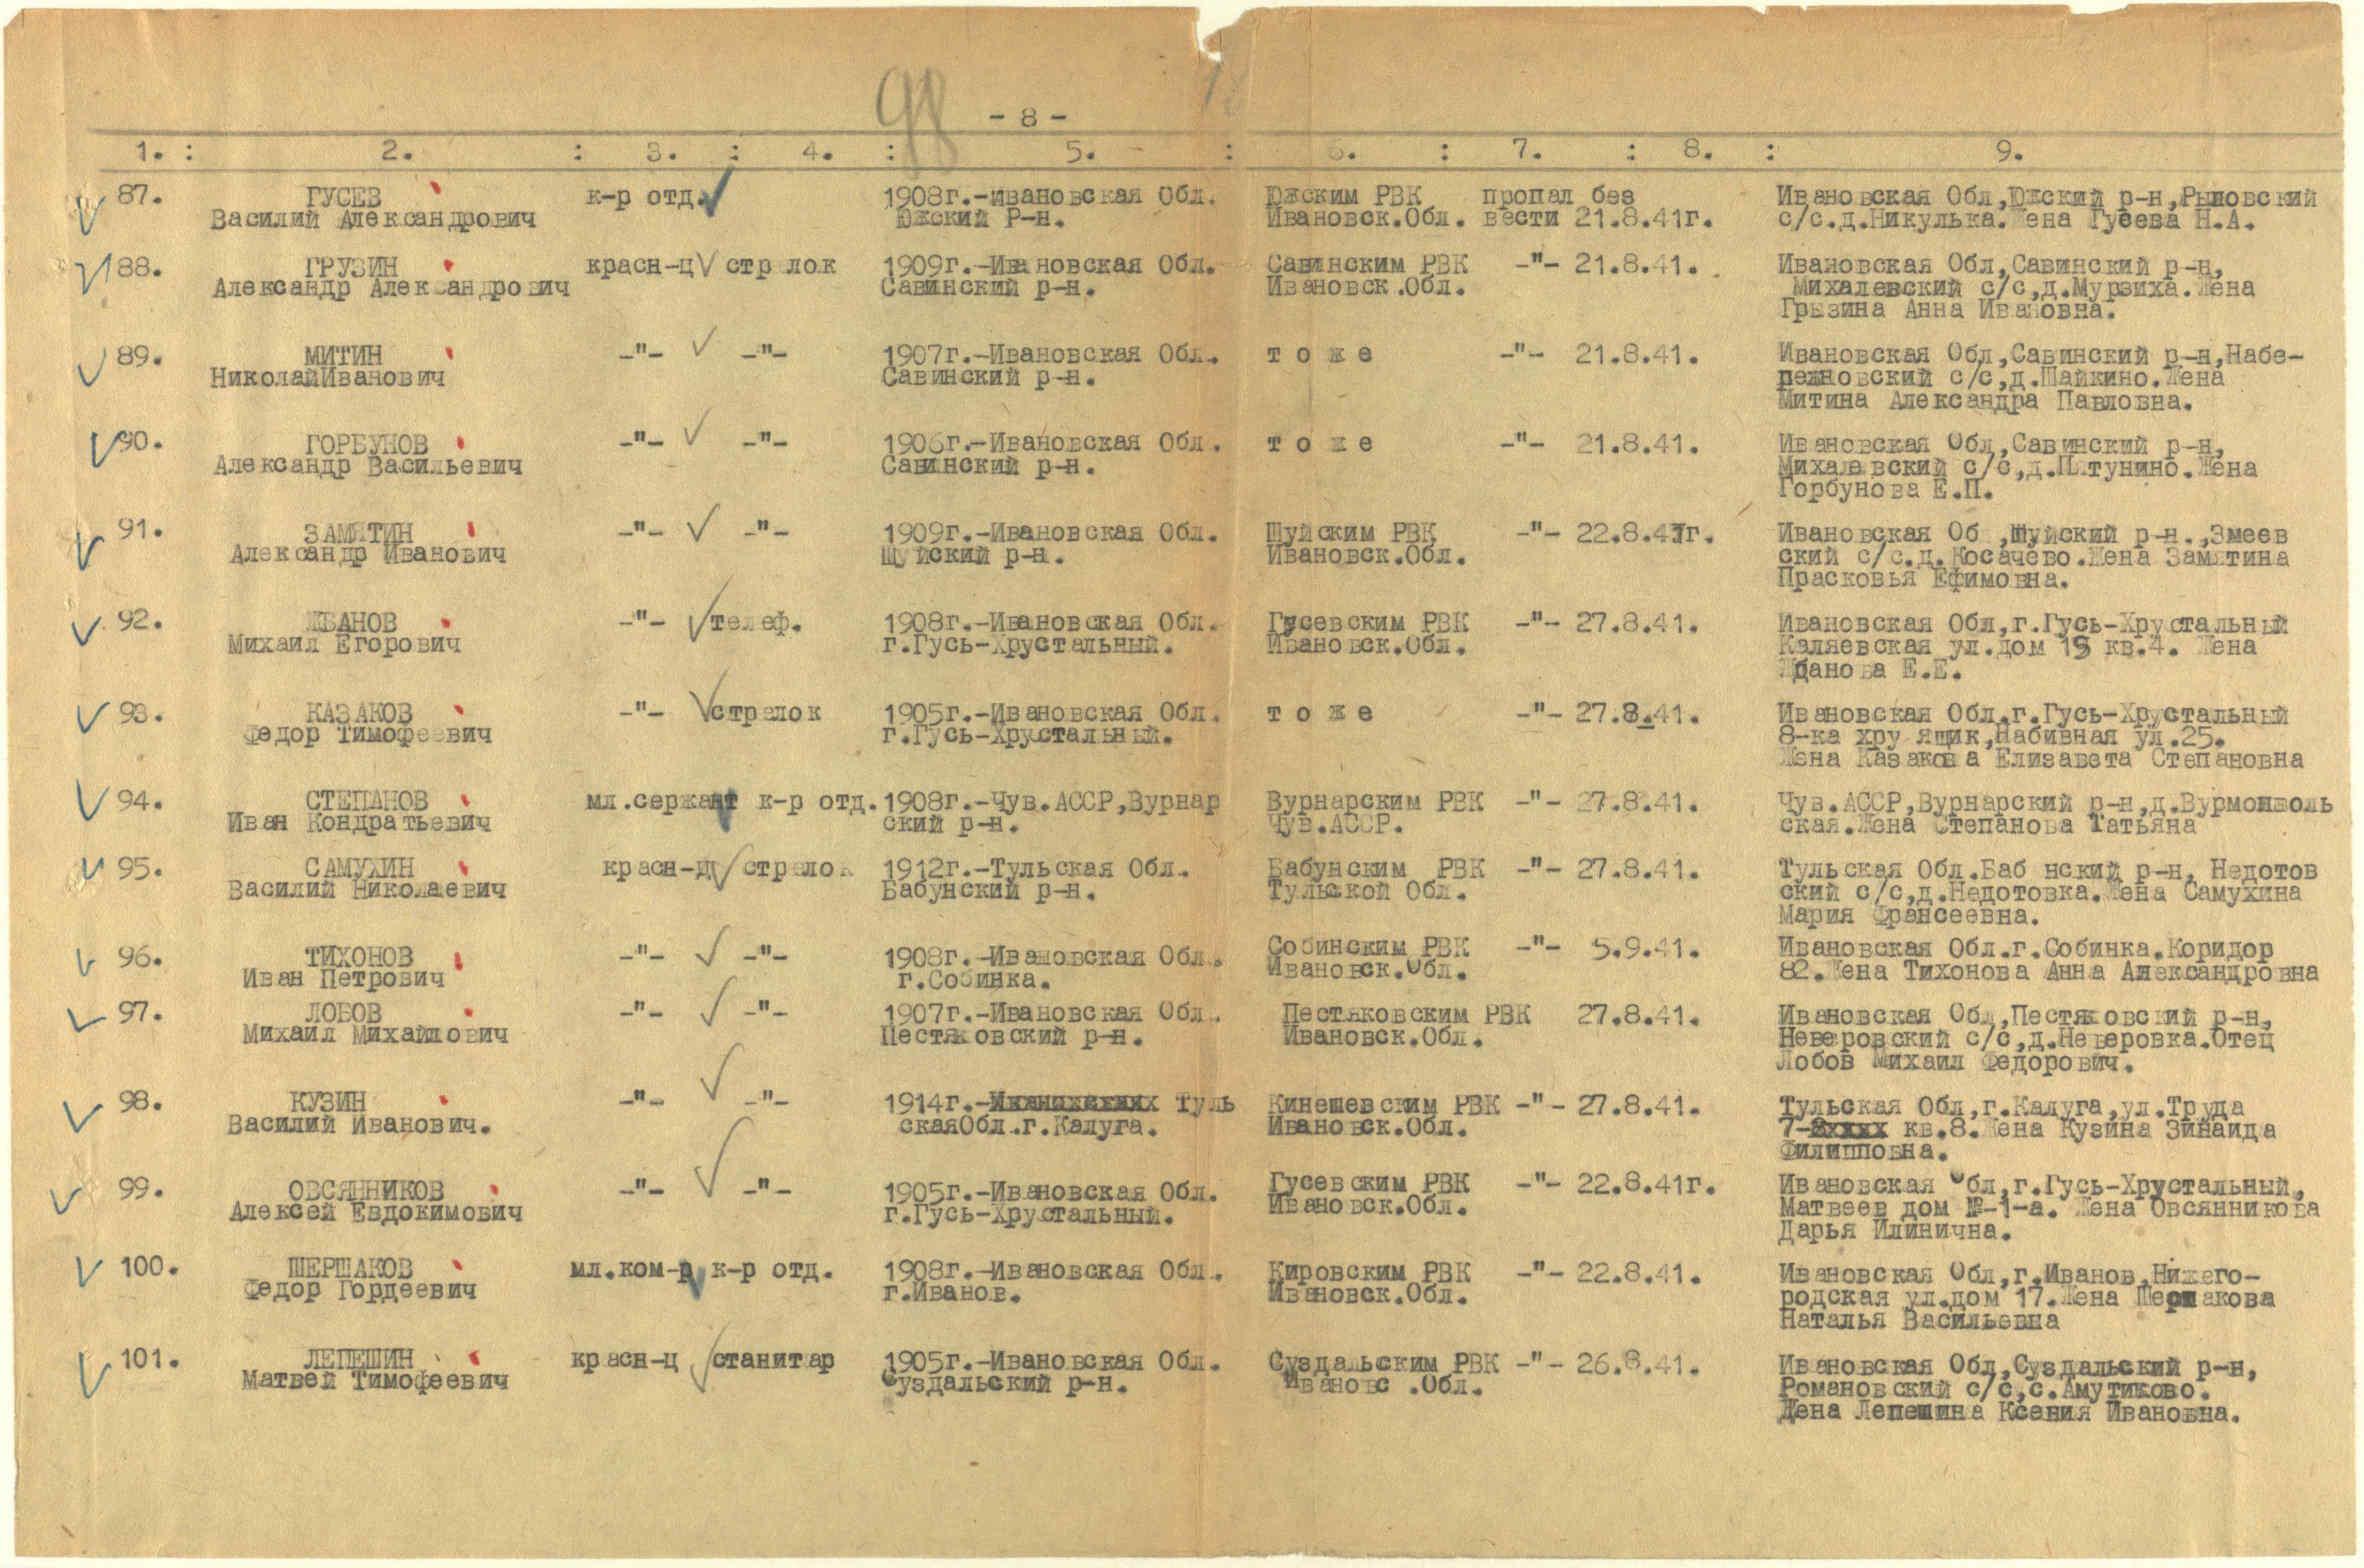 98
- 8 -
1. : 2. : 3. : 4. : 5. : 6. : 7. : 8. : 9.
87. ГУСЕВ к-р отд. 1908г.-ивановская Обл. Южским РВК пропал без Ивановская Обл,Южский р-н,Рыловский
Василий Александрович Южский Р-н. Ивановск.Обл. вести 21.8.41г. с/с.д.Никулька.Жена Гусева Н.А.
88. ГРУЗИН красн-ц стрелок 1909г.-Ивановская Обл. Савинским РВК -"- 21.8.41. Ивановская Обл,Савинский р-н,
Александр Александрович Савинский р-н. Ивановск.Обл. Михалевский с/с,д.Мурзиха.Жена
Грызина Анна Ивановна.
89. МИТИН -"- -"- 1907г.-Ивановская Обл. т о ж е -"- 21.8.41. Ивановская Обл,Савинский р-н,Набе-
НиколайИванович Савинский р-н. режновский с/с,д.Шайкино.Жена
Митина Александра Павловна.
90. ГОРБУНОВ -"- -"- 1906г.-Ивановская Обл. т о ж е -"- 21.8.41. Ивановская Обл,Савинский р-н,
Александр Васильевич Савинский р-н. Михалевский с/с,д. Жена
Горбунова Е.П.
91. ЗАМЯТИН -"- -"- 1909г.-Ивановская Обл. Шуйским РВК -"- 22.8.41г. Ивановская Об ,Шуйский р-н.,Змеев
Александр Иванович Шуйский р-н. Ивановск.Обл. ский с/с.д.Косачево.Жена Замятина
Прасковья Ефимовна.
92. ЖБАНОВ -"- телеф. 1908г.-Ивановская Обл. Гусевским РВК -"- 27.8.41. Ивановская Обл,г.Гусь-Хрустальный
Михаил Егорович г.Гусь-Хрустальный. Ивановск.Обл. Каляевская ул.дом кв.4. Жена
Жбанова Е.Е.
93. КАЗАКОВ -"- стрелок 1905г.-Ивановская Обл. т о ж е -"- 27.8.41. Ивановская Обл.г.Гусь-Хрустальный
Федор Тимофеевич г.Гусь-Хрустальный. 8-ка хру ящик,Набивная ул.25.
Жена Казакова Елизавета Степановна
94. СТЕПАНОВ мл.сержант к-р отд. 1908г.-Чув.АССР,Вурнар Вурнарским РВК -"- 27.8.41. Чув.АССР,Вурнарский р-н,д.
Иван Кондратьевич ский р-н. Чув.АССР. ская.Жена Степанова Татьяна
95. САМУХИН красн-ц стрелок 1912г.-Тульская Обл. Бабунским РВК -"- 27.8.41. Тульская Обл.Баб нский р-н, Недотов
Василий Николаевич Бабунский р-н. Тульской Обл. ский с/с,д.Недотовка.Жена Самухина
Мария Франсеевна.
96. ТИХОНОВ -"- -"- 1908г.-Ивановская Обл. Собинским РВК -"- 5.9.41. Ивановская Обл.г.Собинка.Коридор
Иван Петрович г.Собинка. Ивановск.Обл. 82.Жена Тихонова Анна Александровна
97. ЛОБОВ -"- -"- 1907г.-Ивановская Обл. Пестяковским РВК 27.8.41. Ивановская Обл,Пестяковский р-н,
Михаил Михайлович Пестяковский р-н. Ивановск.Обл. Неверовский с/с,д.Неверовка.Отец
Лобов Михаил Федорович.
98. КУЗИН -"- -"- 1914г.- Туль Кинешевским РВК -"- 27.8.41. Тульская Обл,г.Калуга,ул.Труда
Василий Иванович. скаяОбл.г.Калуга. Ивановск.Обл. 7- кв.8.Жена Кузина Зинаида
Филипповна.
99. ОВСЯННИКОВ -"- -"- 1905г.-Ивановская Обл. Гусевским РВК -"- 22.8.41г. Ивановская Обл,г.Гусь-Хрустальный,
Алексей Евдокимович г.Гусь-Хрустальный. Ивановск.Обл. Матвеев дом №-1-а. Жена Овсянникова
Дарья Илинична.
100. ШЕРШАКОВ мл.ком-р к-р отд. 1908г.-Ивановская Обл. Кировским РВК -"- 22.8.41. Ивановская Обл,г.Иванов,Нижего-
Федор Гордеевич г.Иванов. Ивановск.Обл. родская ул.дом 17.Жена Шершакова
Наталья Васильевна
101. ЛЕПЕШИН красн-ц станитар 1905г.-Ивановская Обл. Суздальским РВК -"- 26.8.41. Ивановская Обл,Суздальский р-н,
Матвей Тимофеевич Суздальский р-н. Ивановс .Обл. Романовский с/с,с.Амутиково.
Жена Лепешина Ксения Ивановна.